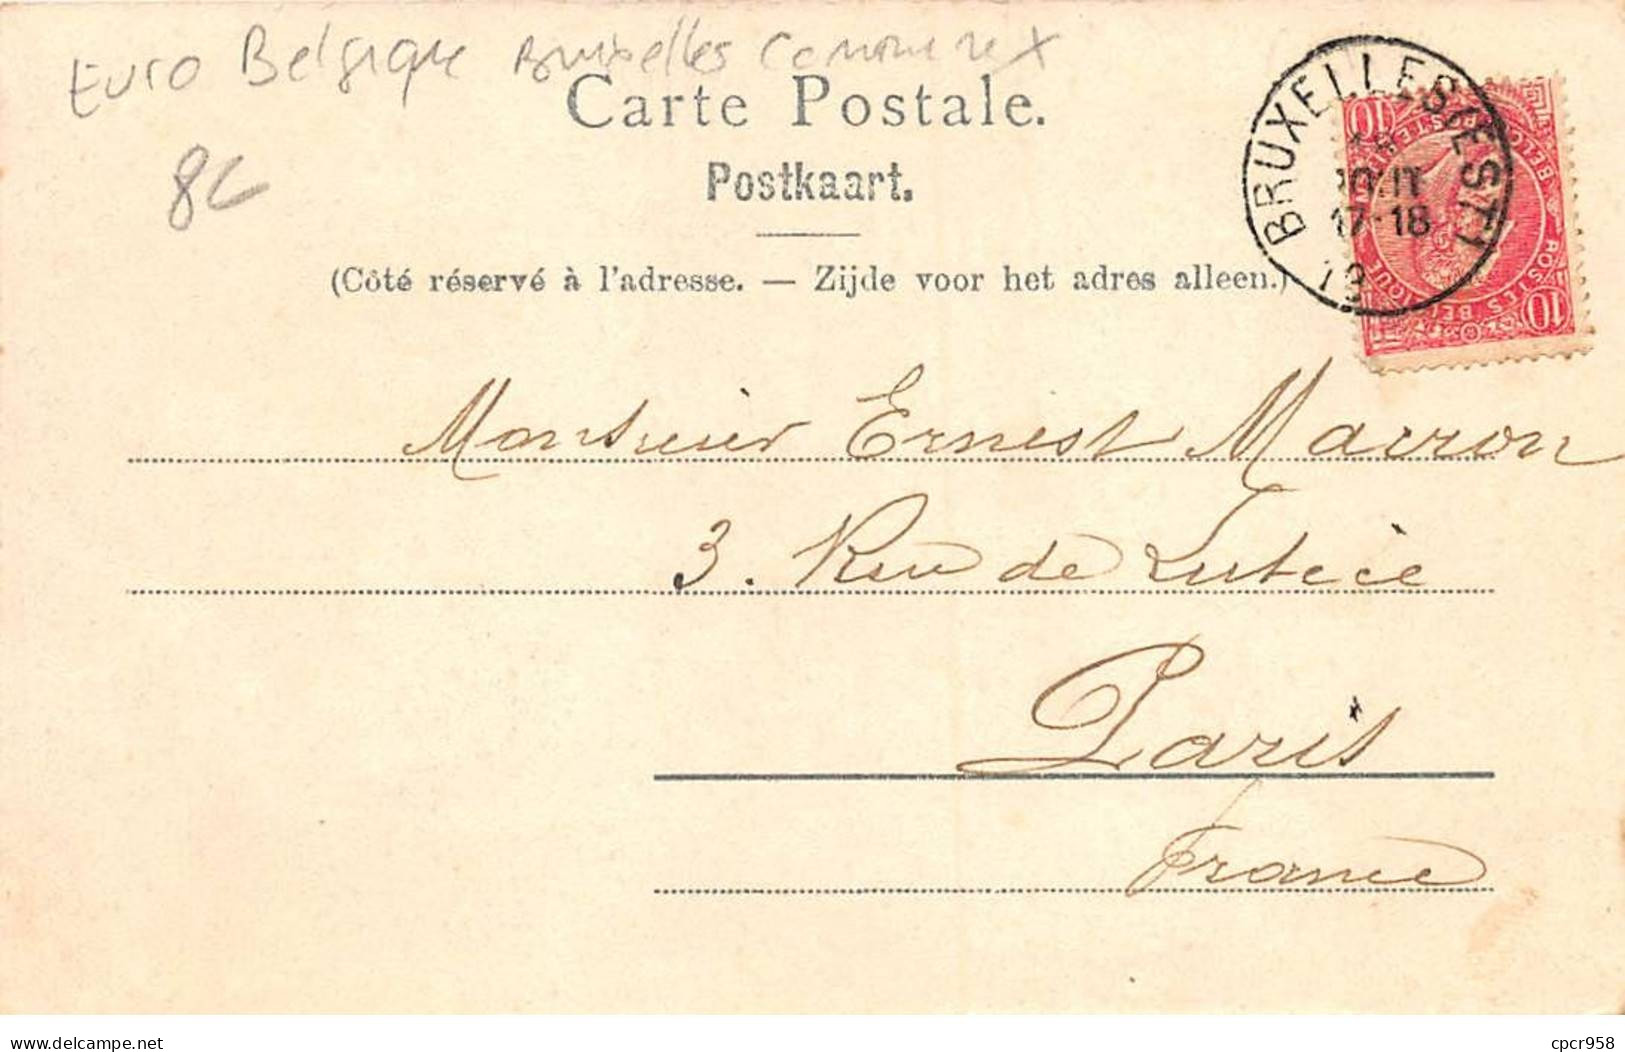 Euro Belgique Bruxelles Commerce X
Carte Postale.
8€
Postkaart.
(Côté réservé à l'adresse. — Zijde voor het adres alleen.)
BRUXELLES (EST) 1
AOUT
17-18
19
10
10
POSTES
Monsieur Ernest Marron
3. Rue de Lutèce
Paris
France
www.delcampe.net
cpcr958